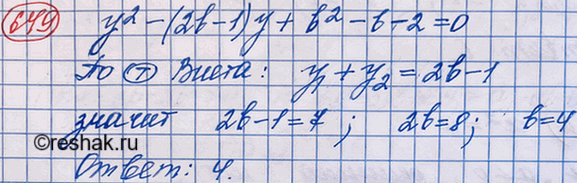 649 y² - (2b-1)y + b² - b - 2 = 0
По (Т) Виета: y₁ + y₂ = 2b-1
значит 2b-1=7; 2b=8; b=4
©reshak.ru
Ответ: 4.